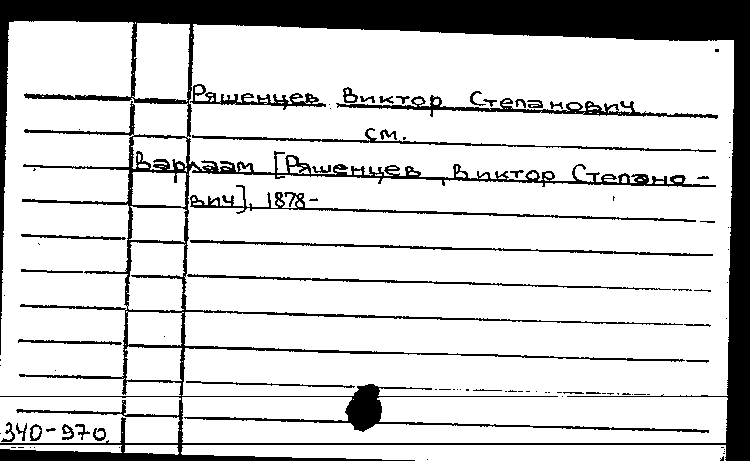 Ряшенцев Виктор Степанович
см.
Варлаам [Ряшенцев, Виктор Степано-
вич], 1878-
340-970.